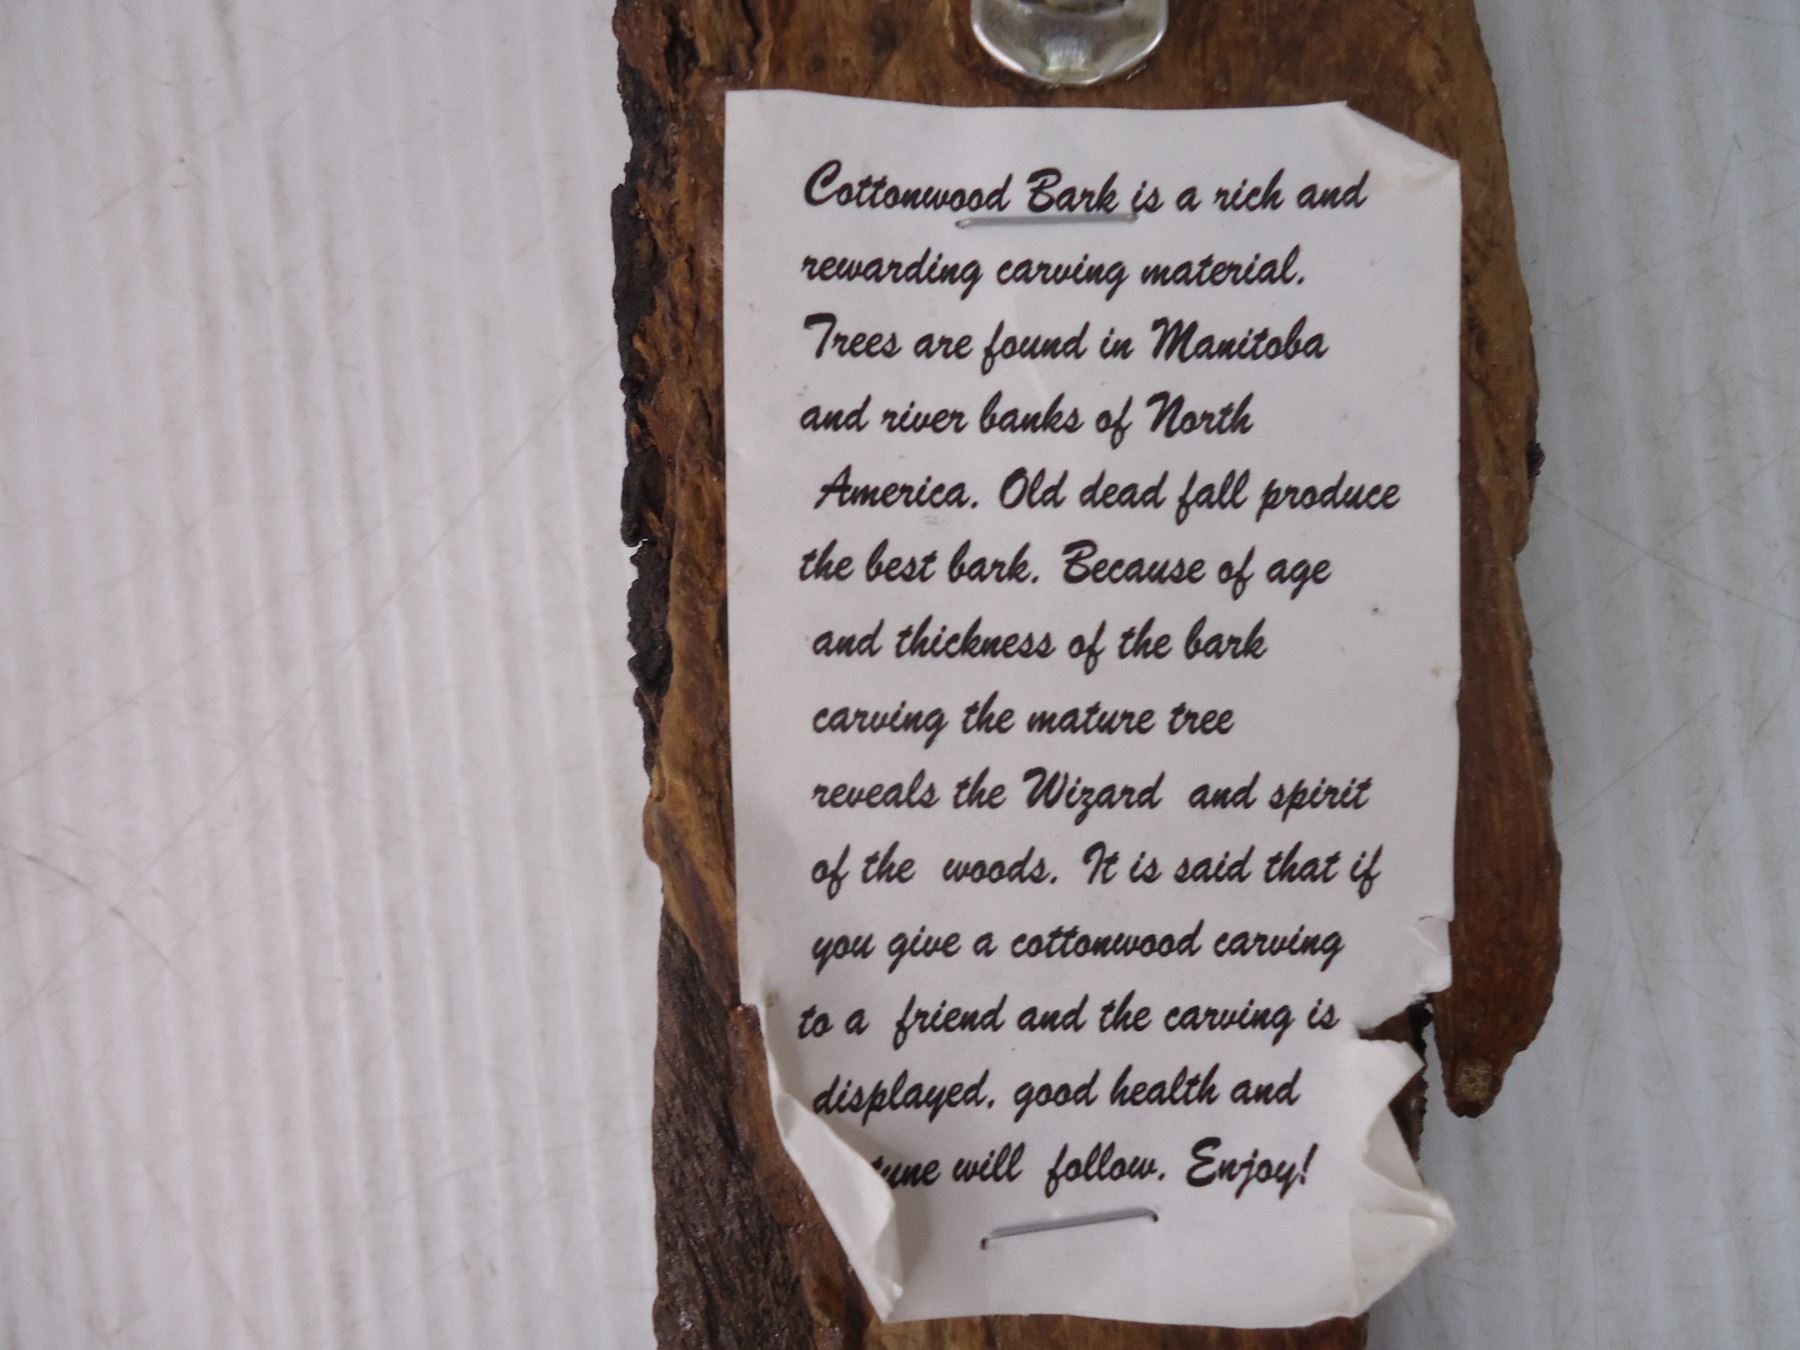 Cottonwood Bark is a rich and
rewarding carving material.
Trees are found in Manitoba
and river banks of North
America. Old dead fall produce
the best bark. Because of age
and thickness of the bark
carving the mature tree
reveals the Wizard and spirit
of the woods. It is said that if
you give a cottonwood carving
to a friend and the carving is
displayed, good health and
will follow. Enjoy!